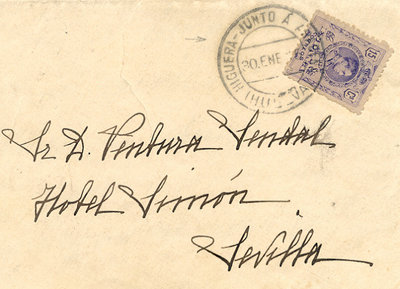 HIGUERA-JUNTO A
30.ENE
15
15
Sr. D. Ventura Sendal
Hotel Simón
Sevilla